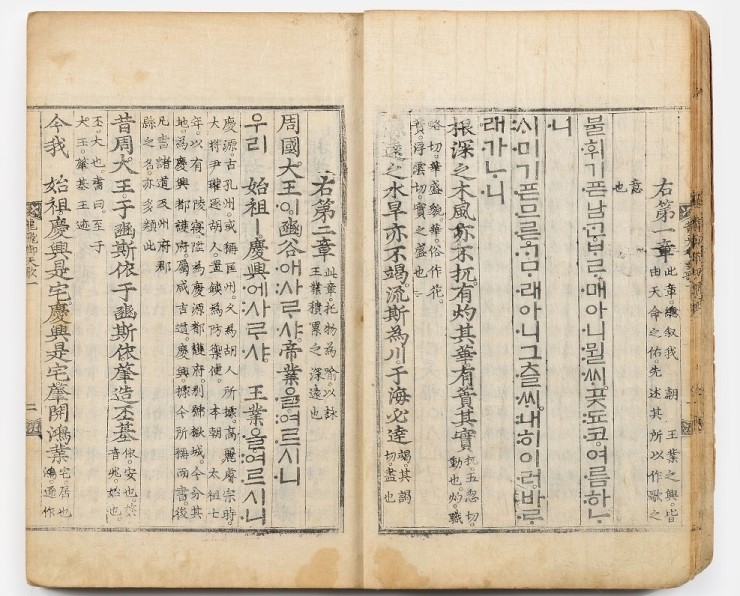 右第一章 此章。總叙我 朝 王業之興。皆
由天命之佑。先述其所以作歌之
意
也
불휘기픈남ᄀᆞᆫᄇᆞᄅᆞ매아니뮐ᄊᆡ。곶됴코。여름하ᄂᆞ
니
ᄉᆡ미기픈므른ᄀᆞᄆᆞ래아니그츨ᄊᆡ。내히이러바ᄅᆞ
래가ᄂᆞ니
根深之木。風亦不扤。有灼其華。有蕡其實 扤。五忽切。
動也。灼。職
略切。華盛貌。華。俗作花。
蕡。浮雲切。實之盛也。
源遠之水。旱亦不竭。流斯為川。于海必達 竭。其謁
切。盡也
右第二章 此章。托物為喻。以詠
王業積累之深遠也
周國大王이。豳谷애사ᄅᆞ샤。帝業을여르시니
우리 始祖ㅣ慶興에사ᄅᆞ샤。 王業을여르시니
慶源。古孔州。或稱匡州。久為胡人所據。高麗睿宗時。
大將尹瓘逐胡人。置鎮為防禦使。本朝 太祖七
年。以有 陵寢。陞為慶源都護府。別號楸城。今分其
地。為慶興都護府。屬咸吉道。慶興。標今所稱而書。後
凡言諸道及州府郡
縣之名。亦多類此
昔周大王。于豳斯依。于豳斯依。肇造丕基 依。安也。肇。
音兆。始也。
丕。大也。書曰。至于
大王。肇基王迹
今我 始祖。慶興是宅。慶興是宅。肇開鴻業 宅。居也。
鴻。通作
龍飛御天歌一
二